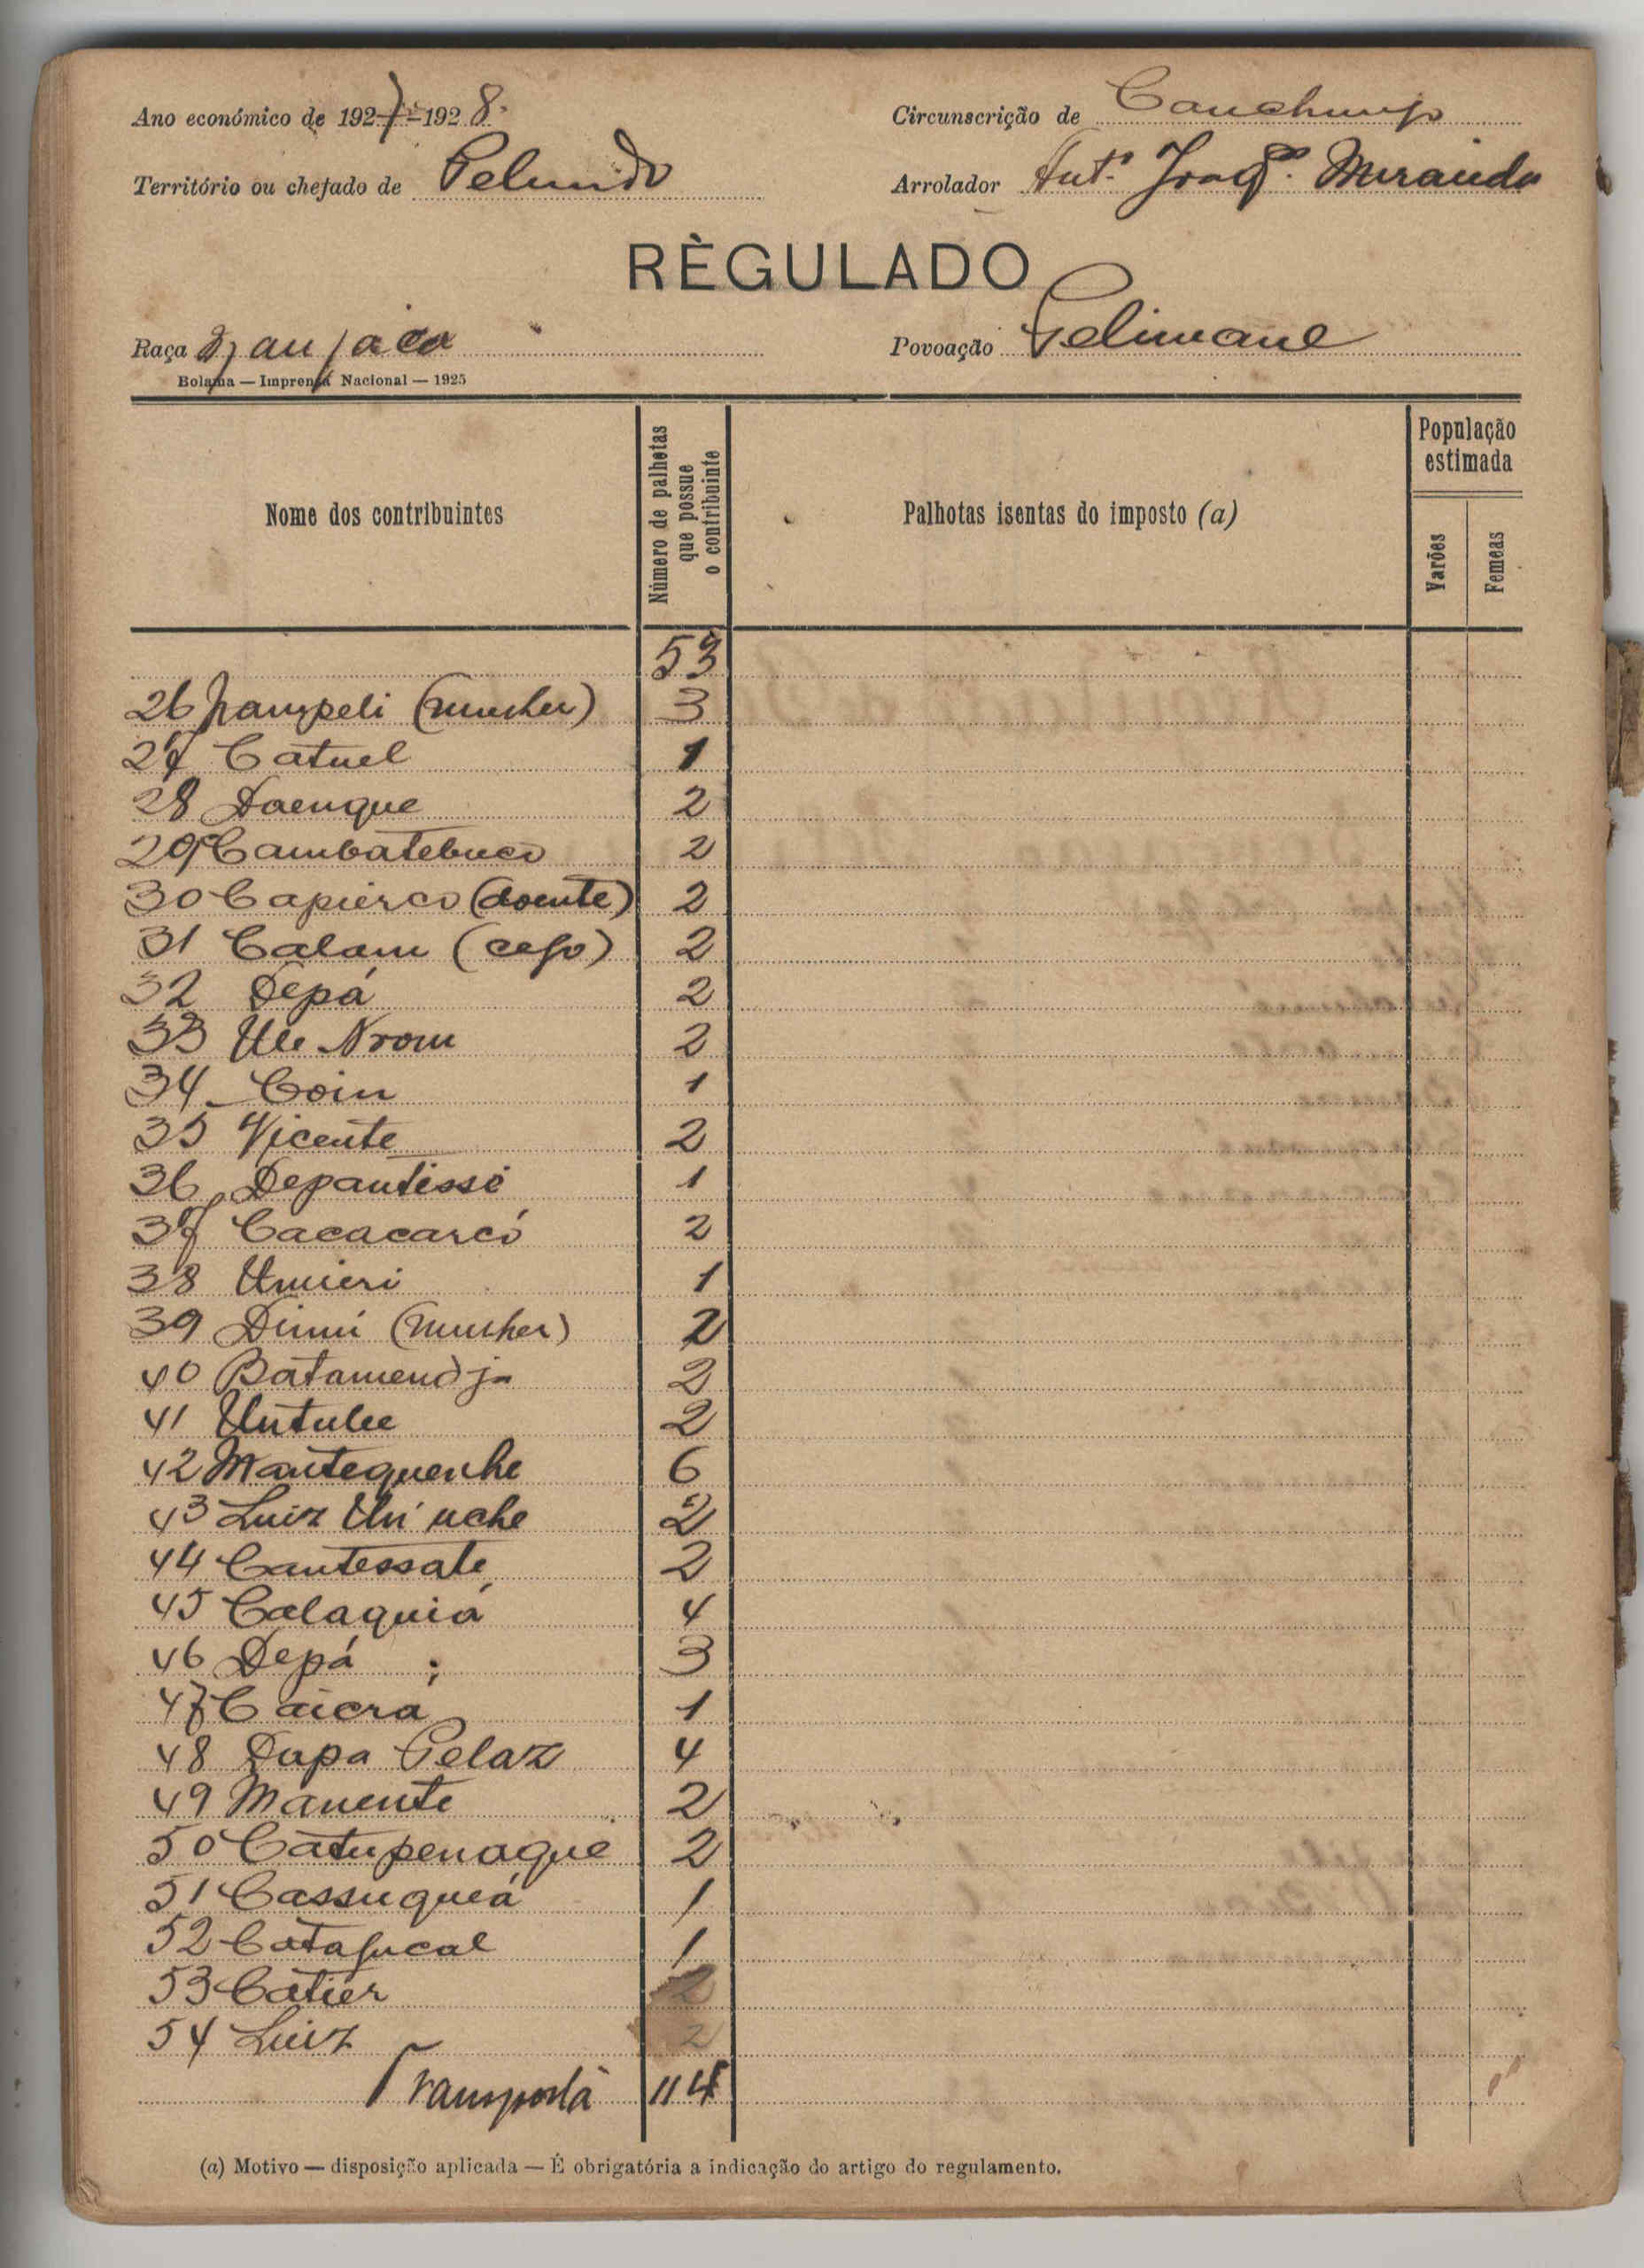 Ano económico de 1927-1928.
Circunscrição de Canchungo
Território ou chefado de Pelundo
Arrolador Antº Joaqm. Miranda
RÈGULADO
Raça Manjaca
Povoação Pelimane
Bolama — Imprensa Nacional — 1925
Nome dos contribuintes
Número de palhotas que possue o contribuinte
Palhotas isentas do imposto (a)
População estimada
Varões
Femeas
53
26 Nampeli (mulher) 3
27 Catuel 1
28 Daenque 2
29 Cambatebuco 2
30 Capierco (doente) 2
31 Calam (cego) 2
32 Depá 2
33 Ule Nrom 2
34 Coin 1
35 Vicente 2
36 Depantissó 1
37 Cacacarcó 2
38 Umieri 1
39 Dimi (mulher) 2
40 Batamendja 2
41 Untulee 2
42 Mantequenhe 6
43 Luiz Un' uche 2
44 Cantessate 2
45 Calaquiá 4
46 Depá 3
47 Caicrá 1
48 Dapa Pelaz 4
49 Manente 2
50 Catupenaque 2
51 Cassuqueá 1
52 Catafucal 1
53 Catier 2
54 Luiz 2
Transporta 114
(a) Motivo — disposição aplicada — É obrigatória a indicação do artigo do regulamento.